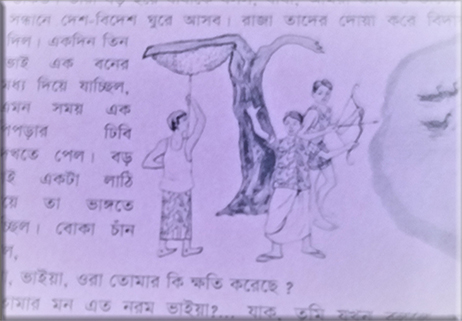 সন্তানে দেশ-বিদেশ ঘুরে আসব। রাজা তাদের দোয়া করে
দিল। একদিন তিন
ভাই এক বনের
মধ্য দিয়ে যাচ্ছিল,
এমন সময় এক
চিবি
দেখতে পেল। বড়
একটা লাঠি
তা ভাঙ্গতে
বোকা চাঁন
ভাইয়া, ওরা তোমার কি ক্ষতি করেছে ?
মন এত নরম ভাইয়া?... যাক, তুমি যখন